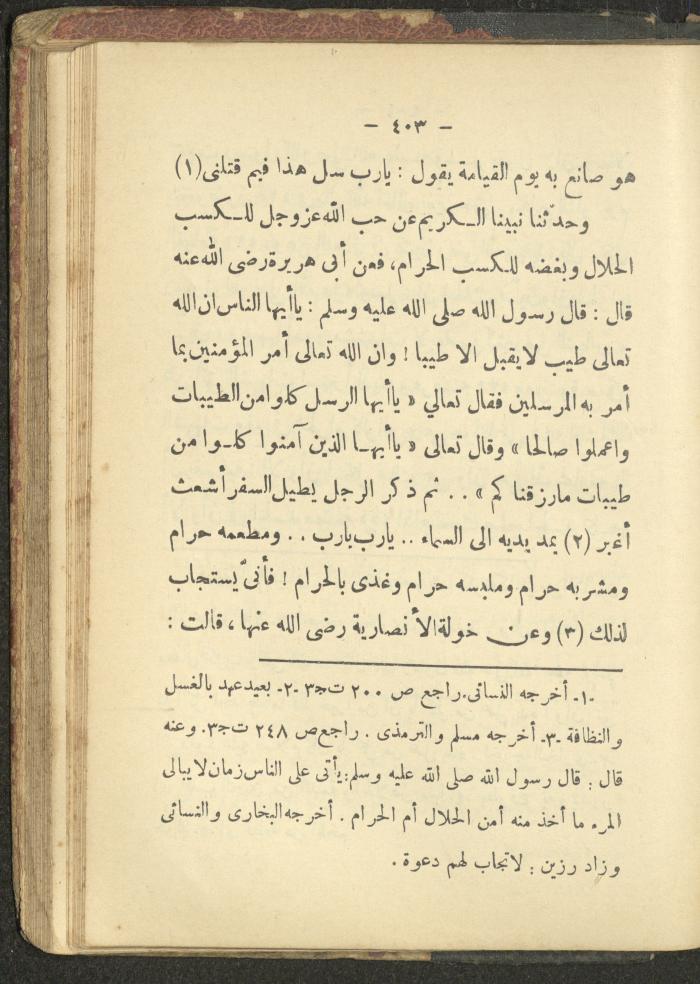 — ٤٠٣ —
هو صانع به يوم القيامة يقول : يارب سل هذا فيم قتلنى (١)
وحدّثنا نبينا الـكريم عن حب الله عز وجل للـكسب
الحلال وبغضه للـكسب الحرام، فعن أبى هريرة رضى الله عنه
قال : قال رسول الله صلى الله عليه وسلم : ياأيها الناس ان الله
تعالى طيب لايقبل الا طيبا ! وان الله تعالى أمر المؤمنين بما
أمر به المرسلين فقال تعالي « ياأيها الرسل كلوا من الطيبات
واعملوا صالحا » وقال تعالى « ياأيهـا الذين آمنوا كلـوا من
طيبات مارزقناكم » . . ثم ذكر الرجل يطيل السفر أشعث
أغبر (٢) يمد يديه الى السماء .. يارب يارب . . ومطعمه حرام
ومشربه حرام وملبسه حرام وغذى بالحرام ! فأنىّ يستجاب
لذلك (٣) وعن خولة الأنصارية رضى الله عنها ، قالت :
-١- أخرجه النسائى. راجع ص ٢٠٠ ت ج٣ -٢- بعيد عهد بالغسل
والنظافة -٣- أخرجه مسلم والترمذى . راجع ص ٢٤٨ ت ج٣. وعنه
قال : قال رسول الله صلى الله عليه وسلم: يأتى على الناس زمان لايبالى
المرء ما أخذ منه أمن الحلال أم الحرام . أخرجه البخارى والنسائى
وزاد رزين : لاتجاب لهم دعوة .